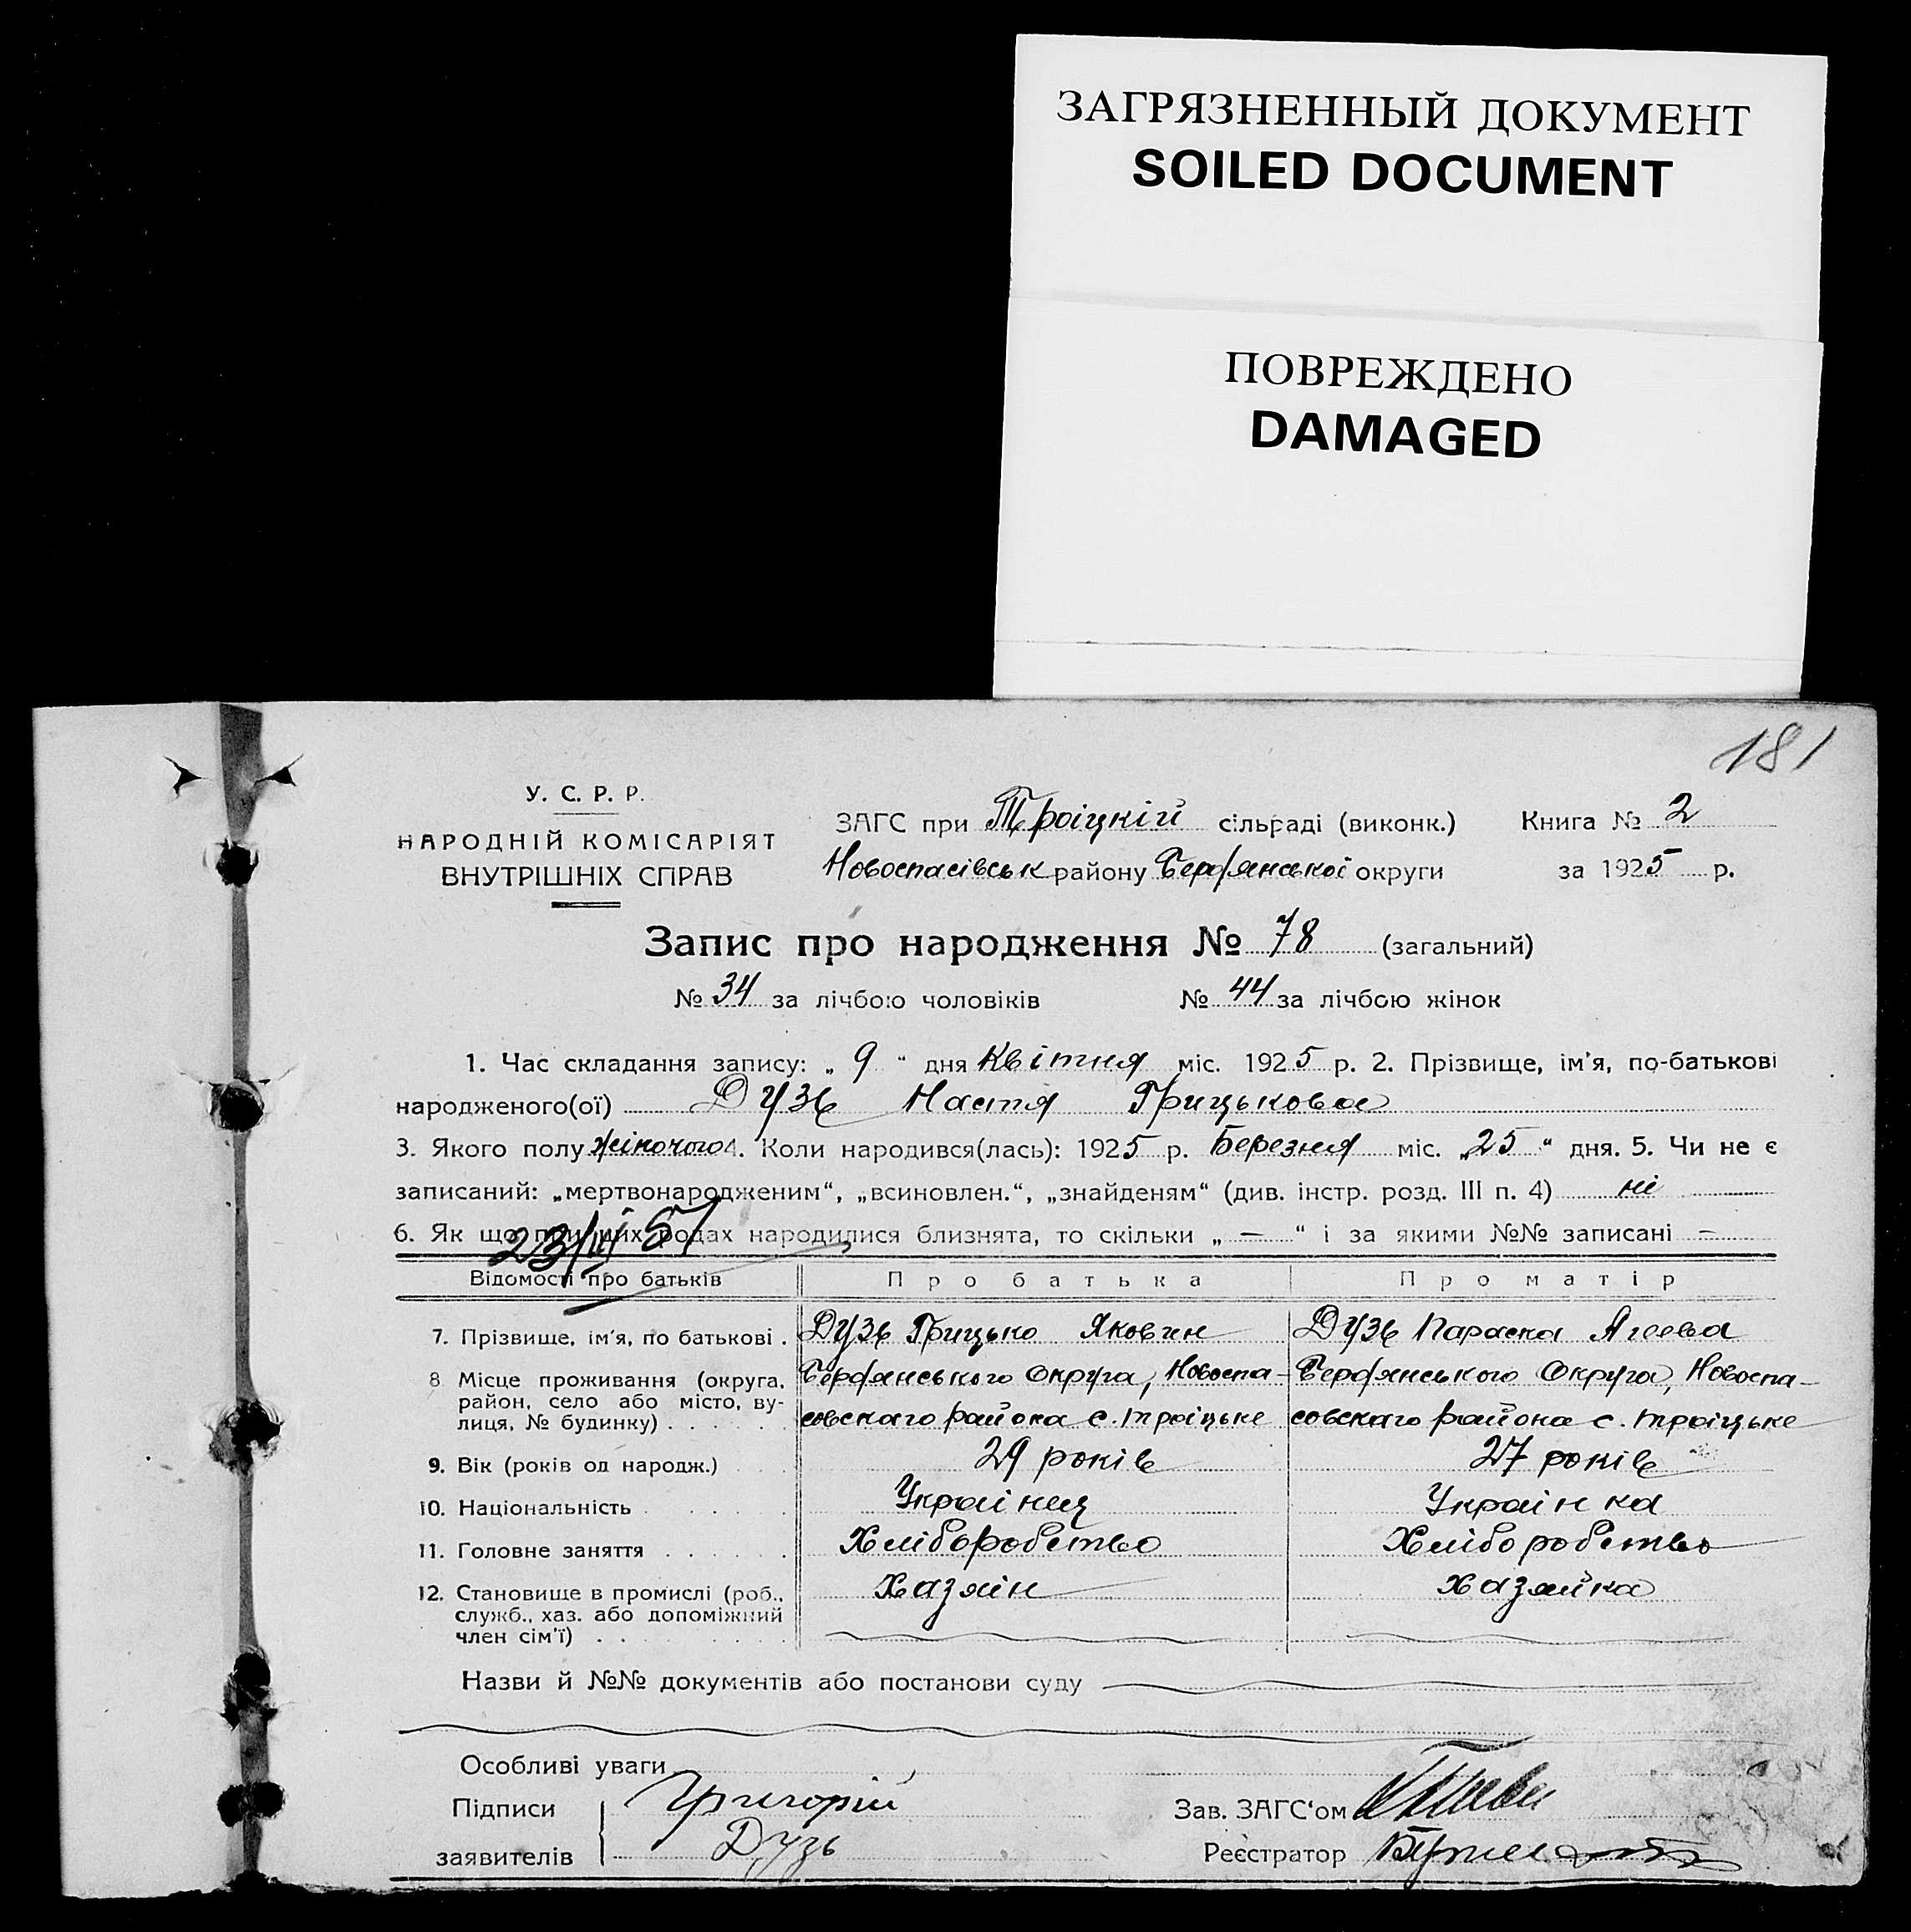 ЗАГРЯЗНЕННЫЙ ДОКУМЕНТ
SOILED DOCUMENT
ПОВРЕЖДЕНО
DAMAGED
181
У. С. Р. Р.
НАРОДНІЙ КОМІСАРІЯТ
ВНУТРІШНІХ СПРАВ
ЗАГС при Троіцкій сільраді (виконк.) Книга № 2
Новоспасівськ району Бердянської округи за 1925 р.
Запис про народження № 78 (загальний)
№ 34 за лічбою чоловіків № 44 за лічбою жінок
1. Час складання запису: „ 9 “ дня Квітня міс. 1925 р. 2. Прізвище, ім'я, по-батькові
народженого(ої) Дузь Настя Грицькова
3. Якого полу жіночого 4. Коли народився(лась): 1925 р. Березня міс. „25“ дня. 5. Чи не є
записаний: „мертвонародженим“, „всиновлен.“, „знайденям“ (див. інстр. розд. III п. 4) ні
6. Як що при цих родах народилися близнята, то скільки „ — “ і за якими №№ записані —
23/III 51
Відомості про батьків Про батька Про матір
7. Прізвище, ім'я, по батькові . Дузь Грицько Яковин Дузь Параска Агеева
8 Місце проживання (округа, Бердянського Округа, Новоспа- Бердянського Округа, Новоспа-
район, село або місто, ву-
лиця, № будинку) . . . . . совскаго района с. Троіцьке совскаго района с. Троіцьке
9. Вік (років од народж.) 29 років 27 років
10. Національність Украінец Украінка
11. Головне заняття . . . . . . Хліборобство Хліборобство
12. Становище в промислі (роб., Хазяін Хазяйка
служб., хаз. або допоміжний
член сім'ї) . . . . . . . . .
Назви й №№ документів або постанови суду
Особливі уваги
Підписи Григорій Зав. ЗАГС'ом
заявителів Дузь Реєстратор